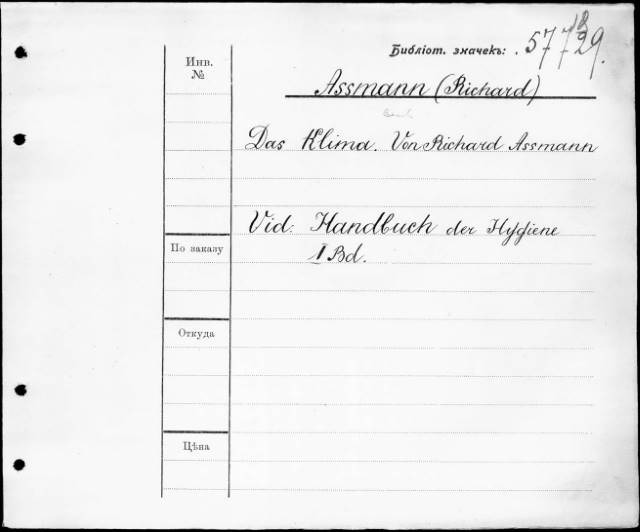 Библіот. значекъ: .
Инв.
№
Assmann (Richard)
Das Klima. Von Richard Assmann
Vid: Handbuch der Hygiene
I Bd.
По заказу
Откуда
Цѣна